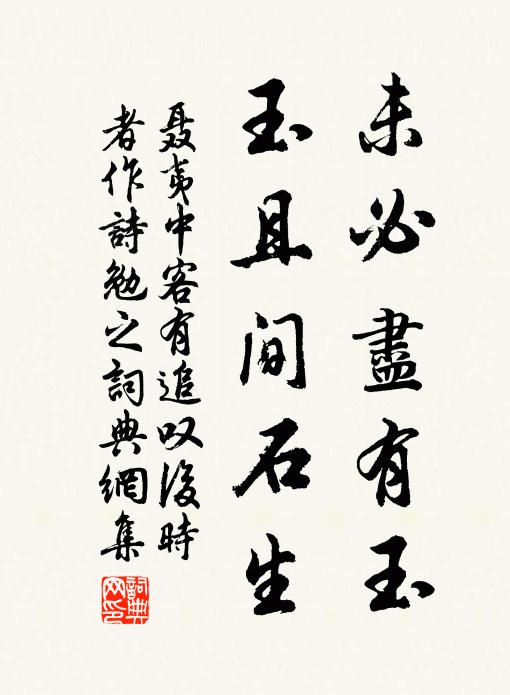 未必盡有玉
玉且间石生
聂夷中客有追叹後時
者作詩勉之詞典網集
詞典网印